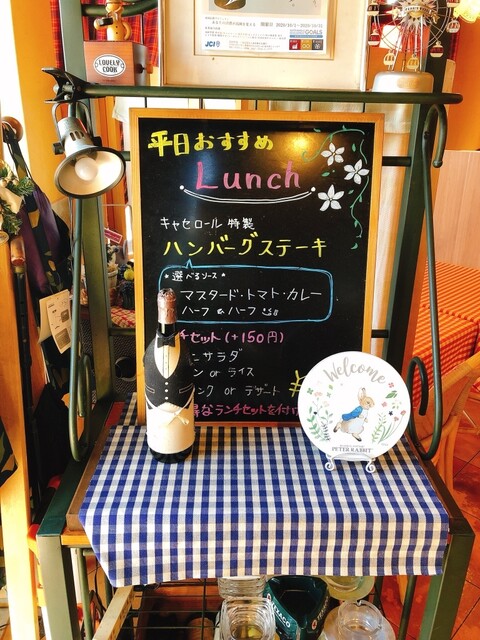 JCI
GOALS
LOVELY
COOK
平日おすすめ
Lunch
キャセロール 特製
ハンバーグステーキ
* 選べるソース *
マスタード・トマト・カレー
ハーフ & ハーフ
チセット (+150円)
ンサラダ
ン or ライス
ンク or デザート
なランチセットを付け
Welcome
PETER RABBIT